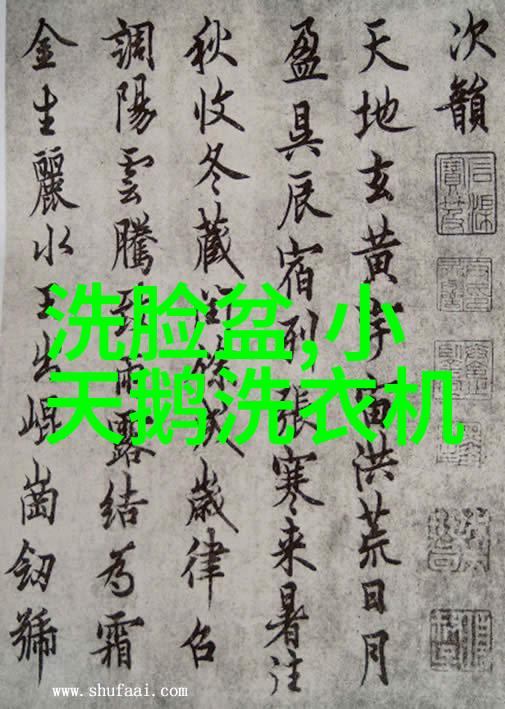 次韻
天地玄黄宇宙洪荒日月
盈昃辰宿列張寒来暑往
秋收冬藏閏餘成歲律召
調陽雲騰致雨露結為霜
金生麗水玉出崐崗劒號
洗脸盆,小
天鹅洗衣机
www.shufaai.com